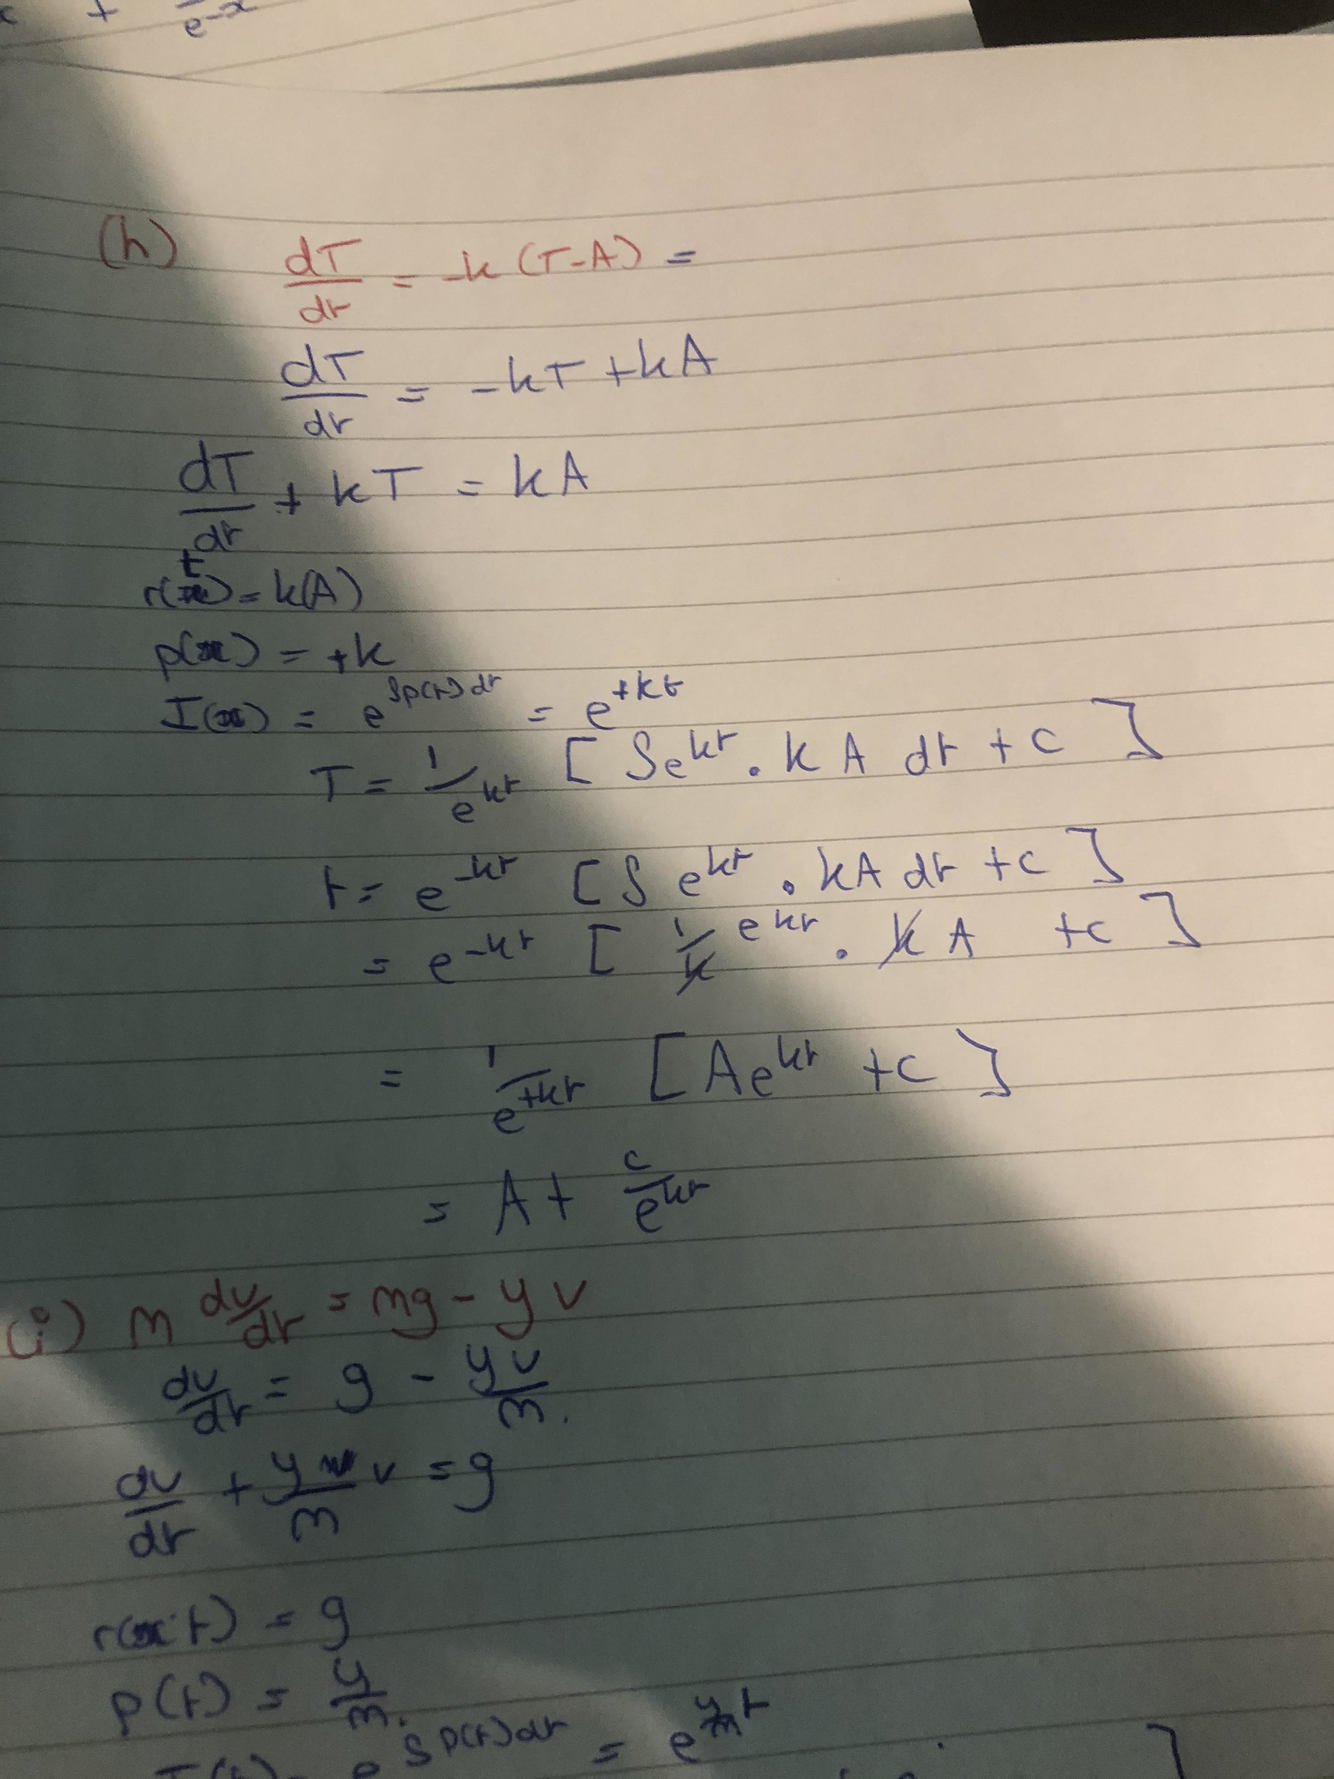 + e-x
(h) dT/dt = -k (T-A) =
dT/dt = -kT + kA
dT/dt + kT = kA
t
r( ) = k(A)
p(x) = +k
I(x) = e^∫p(t) dt = e^+kt
T = 1/e^kt [ ∫e^kt . k A dt + c ]
t = e^-kt [ ∫ e^kt . kA dt + c ]
= e^-kt [ 1/k e^kt . k A + c ]
= 1/e^+kt [ Ae^kt + c ]
= A + c/e^kt
(i) m dv/dt = mg - y v
dv/dt = g - yv/m .
dv/dt + y/m v = g
r( t) = g
p(t) = y/m .
I(t) = e^∫p(t)dt = e^y/m t
]